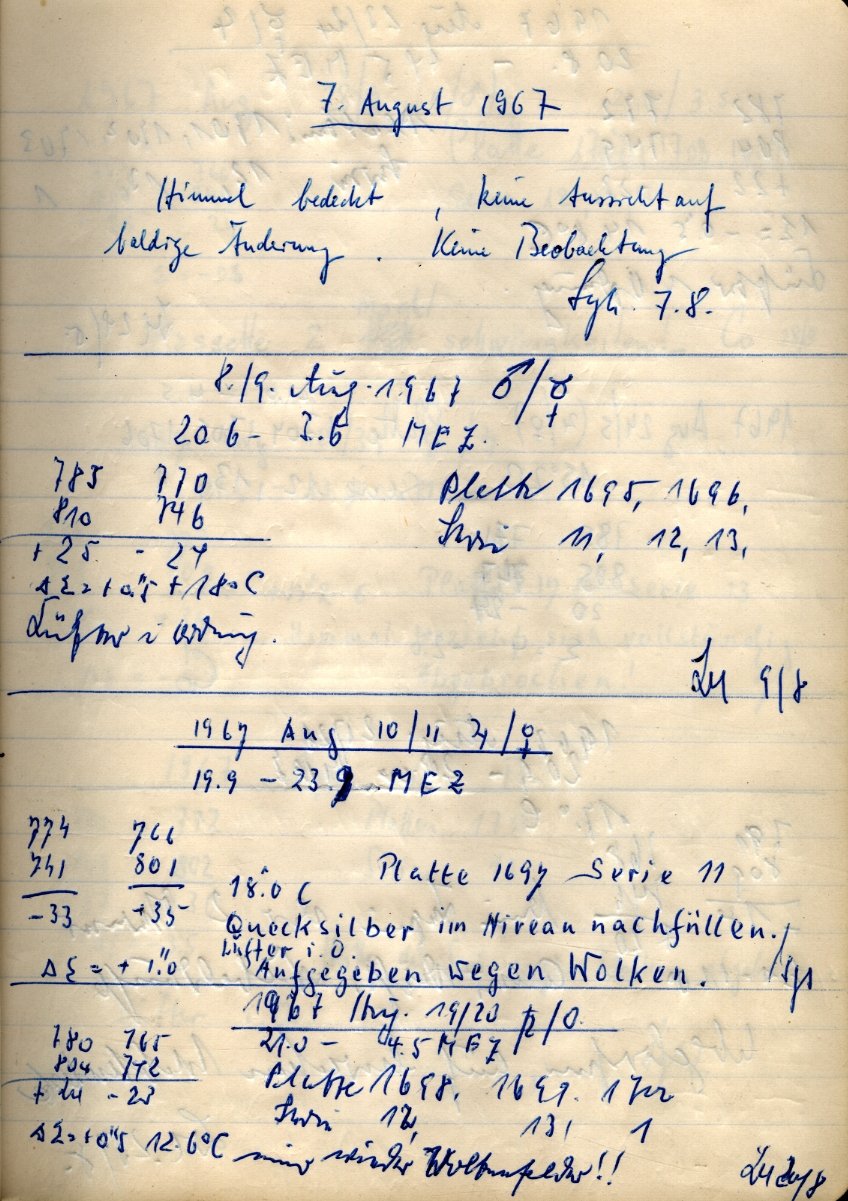 7. August 1967
Himmel bedeckt, keine Aussicht auf
baldige Änderung. Keine Beobachtung
7.8.
8./9. Aug. 1967 ♂/☿
20.6 - 3.6 MEZ.
785 770 Platte 1695, 1696,
810 746 Serie 11, 12, 13,
+25 - 24
ΔΣ = +0."5 +18°C
Lüfter i Ordnung.
9/8
1967 Aug 10/11 ♃/♀
19.9 - 23.9 MEZ
774 766
741 801 18.0 C Platte 1697 Serie 11
-33 +35 Quecksilber im Niveau nachfüllen.
Lüfter i. O.
ΔΣ = + 1."0 Aufgegeben wegen Wolken.
1967 Aug. 19/20 ♄/☉
780 765 21.0 - 4.5 MEZ
804 742 Platte 1698, 1699. 1700
+24 -23 Serie 12, 13, 1
ΔΣ = +0."5 12.6°C immer wieder Wolkenfelder!!
20/8